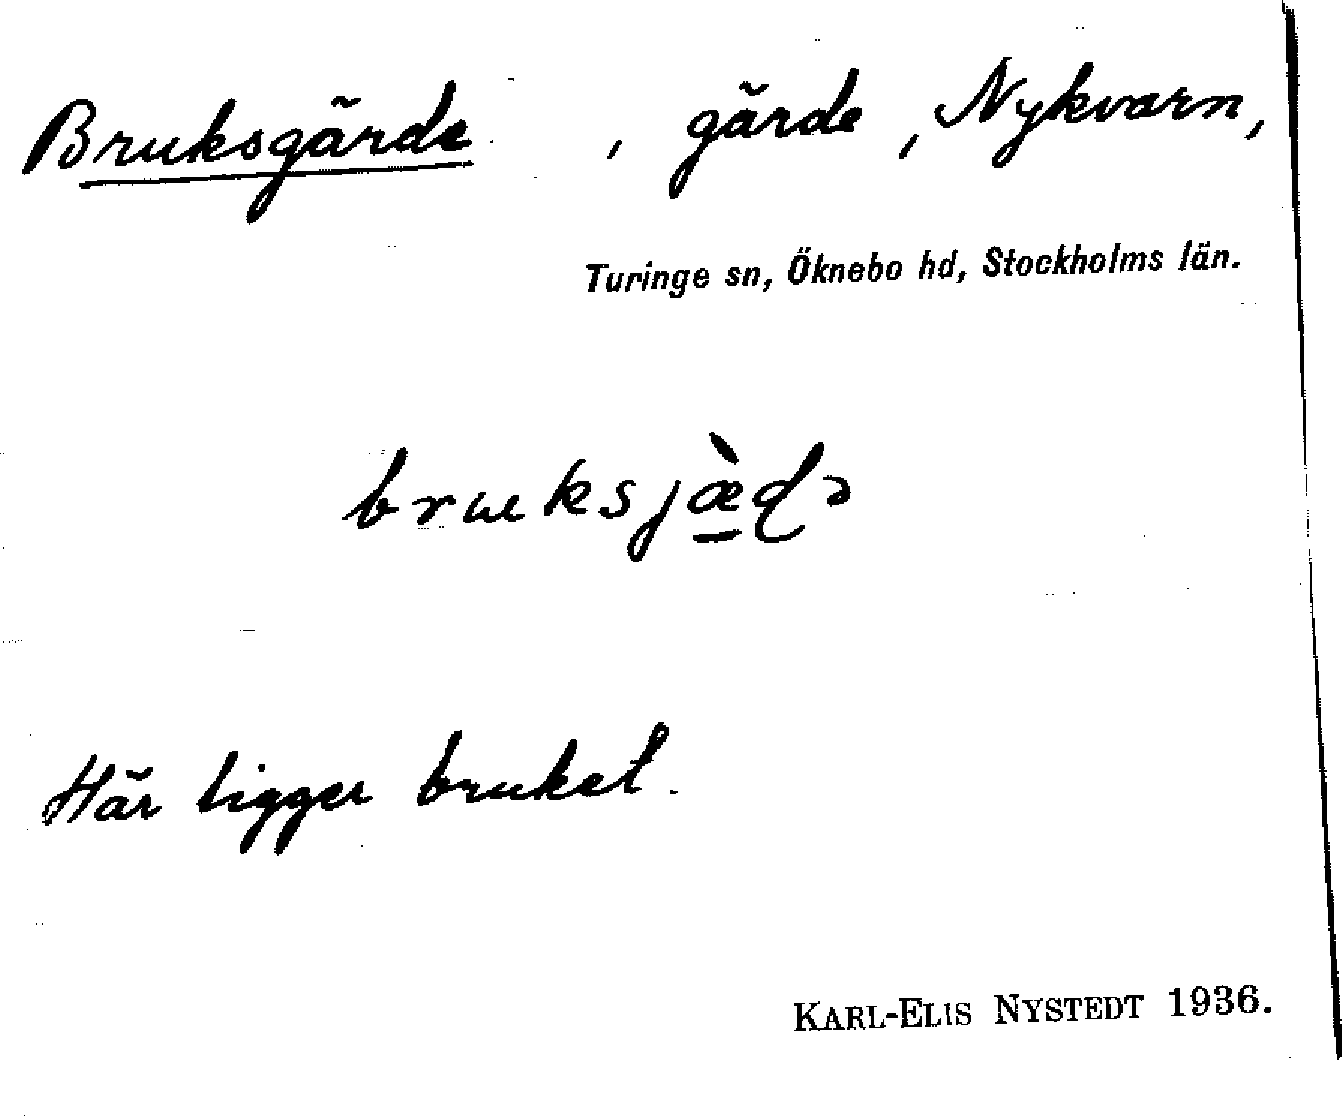 Bruksgärde, gärde, Nykvarn,
Turinge sn, Öknebo hd, Stockholms län.
bruksjæ̠̀ɖə
Här ligger bruket.
KARL-ELIS NYSTEDT 1936.